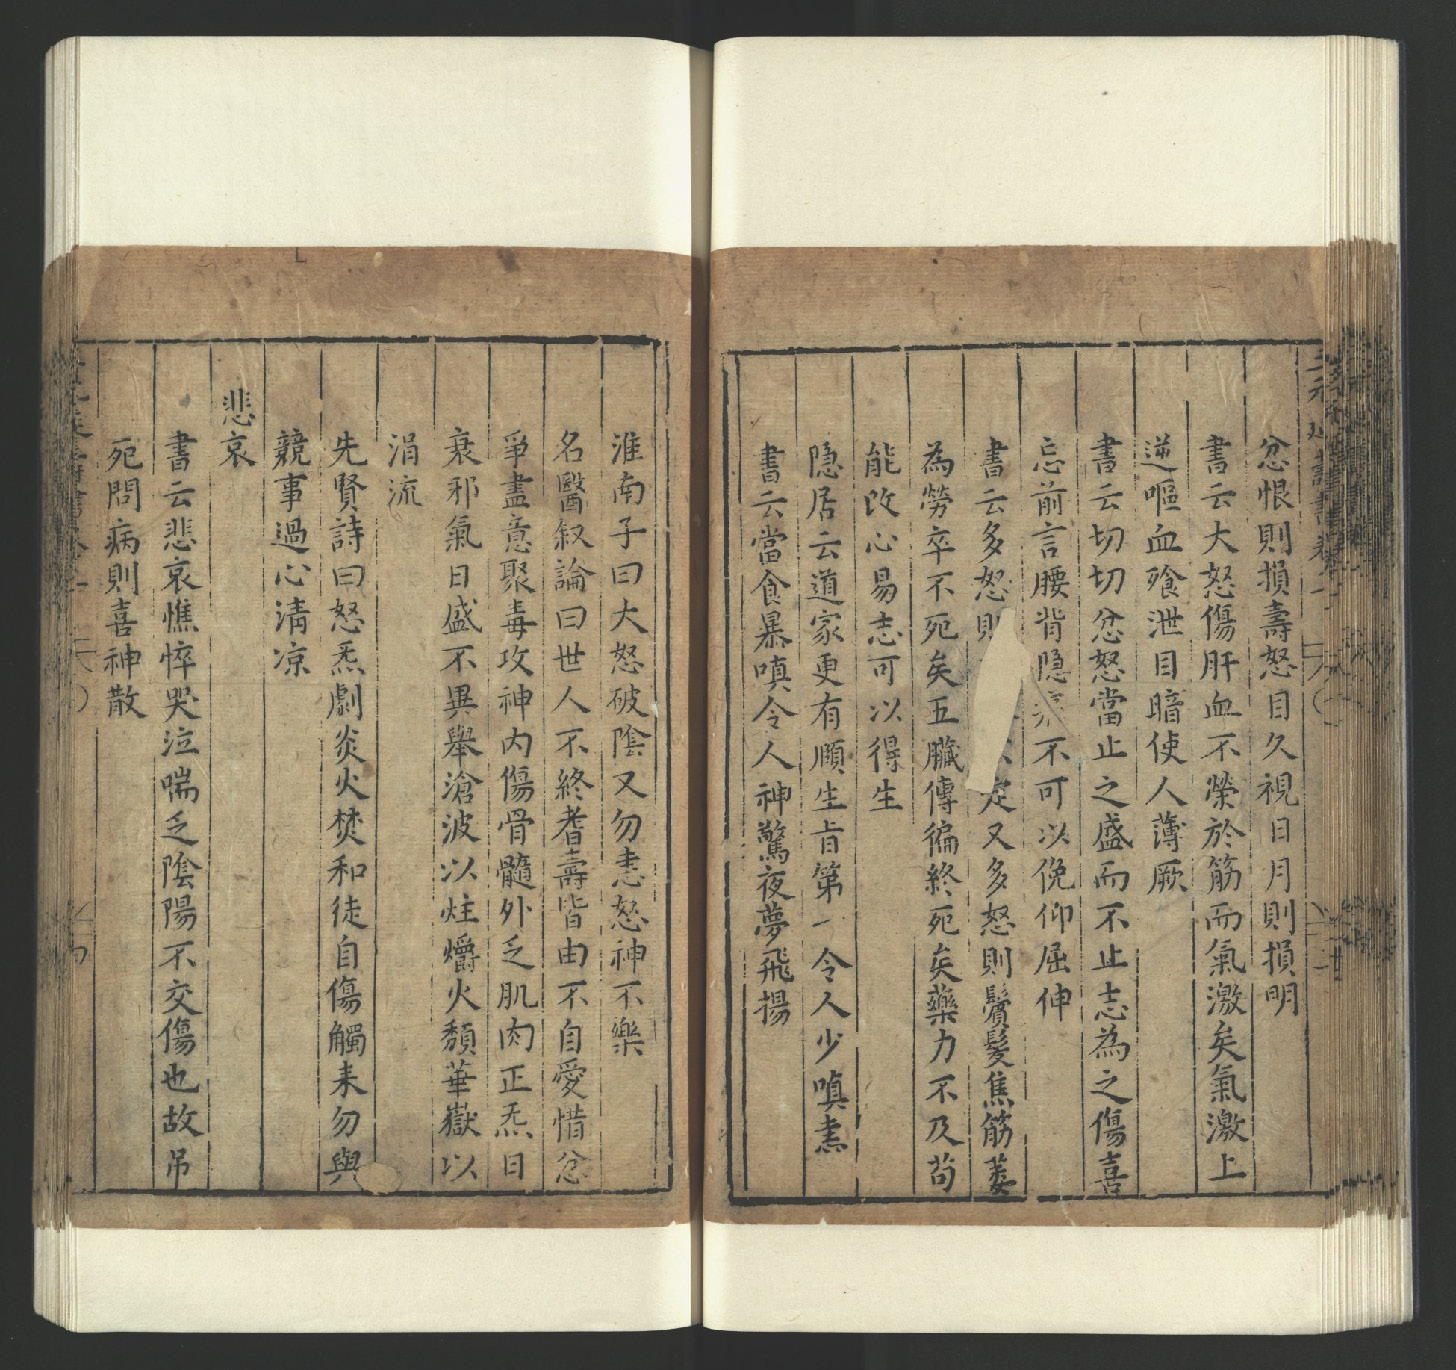 忿恨則損壽怒目久視日月則損明
書云大怒傷肝血不榮於筋而氣激矣氣激上
逆嘔血飱泄目暗使人薄厥
書云切切忿怒當止之盛而不止志為之傷喜
忘前言腰背隐不可以俛仰屈伸
書云多怒則定又多怒則鬢髮焦筋萎
為勞卒不死矣五臟傳徧終死矣藥力不及苟
能改心易志可以得生
隐居云道家更有頤生旨第一令人少嗔恚
書云當食暴嗔令人神驚夜夢飛揚
淮南子曰大怒破陰又勿恚怒神不樂
名醫叙論曰世人不終耆壽皆由不自愛惜忿
爭盡意聚毒攻神内傷骨髓外乏肌肉正炁日
衰邪氣日盛不異舉滄波以炷爝火頹華嶽以
涓流
先賢詩曰怒炁劇炎火焚和徒自傷觸来勿與
競事過心清凉
悲哀
書云悲哀憔悴哭泣喘乏陰陽不交傷也故吊
死問病則喜神散